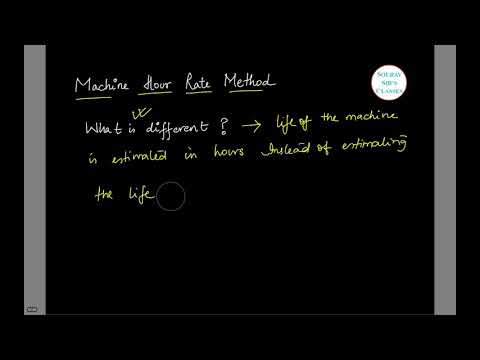 Machine Hour Rate Method
SOURAV
SIR'S
CLASSES
What is different ? → life of the machine
is estimated in hours instead of estimating
the life